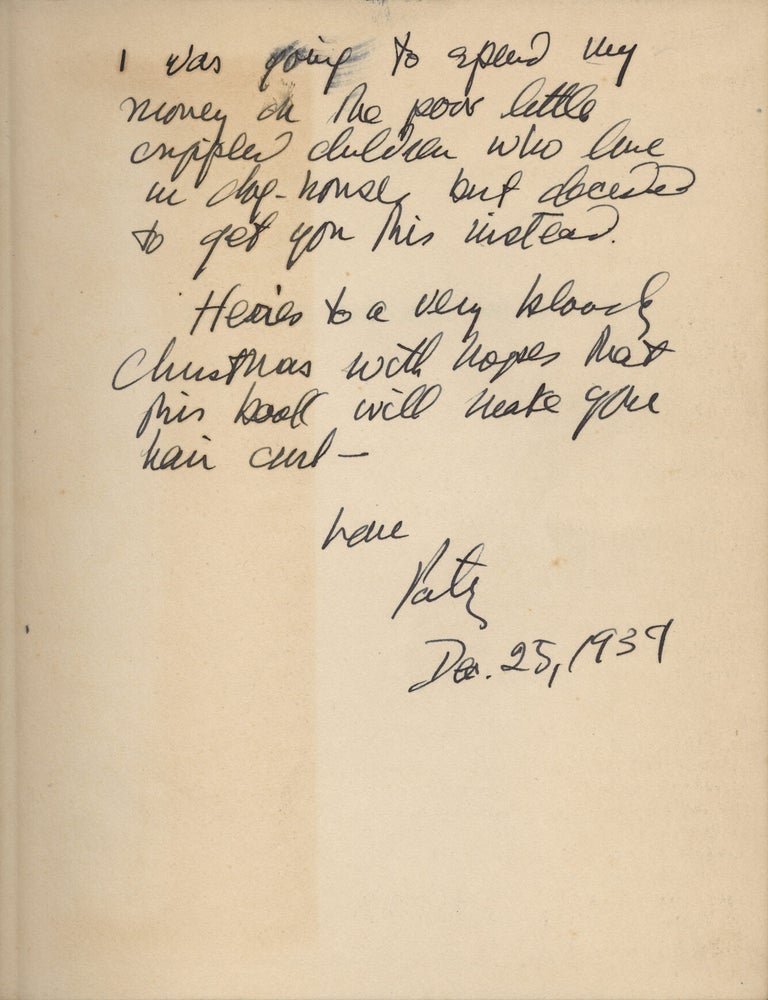 I was going to spend my
money on the poor little
crippled children who live
in dog-houses but decided
to get you this instead.
Here's to a very bloody
Christmas with hopes that
this book will make your
hair curl —
Love
Patsy
Dec. 25, 1937